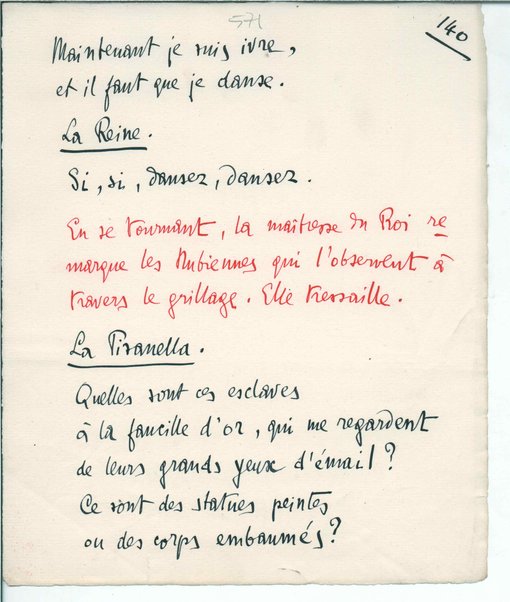 571
140
Maintenant je suis ivre,
et il faut que je danse.
La Reine.
Si, si, dansez, dansez.
En se tournant, la maîtresse du Roi re
marque les Nubiennes qui l'observent à
travers le grillage. Elle tressaille.
La Pisanella.
Quelles sont ces esclaves
à la faucille d'or, qui me regardent
de leurs grands yeux d'émail?
Ce sont des statues peintes
ou des corps embaumés?